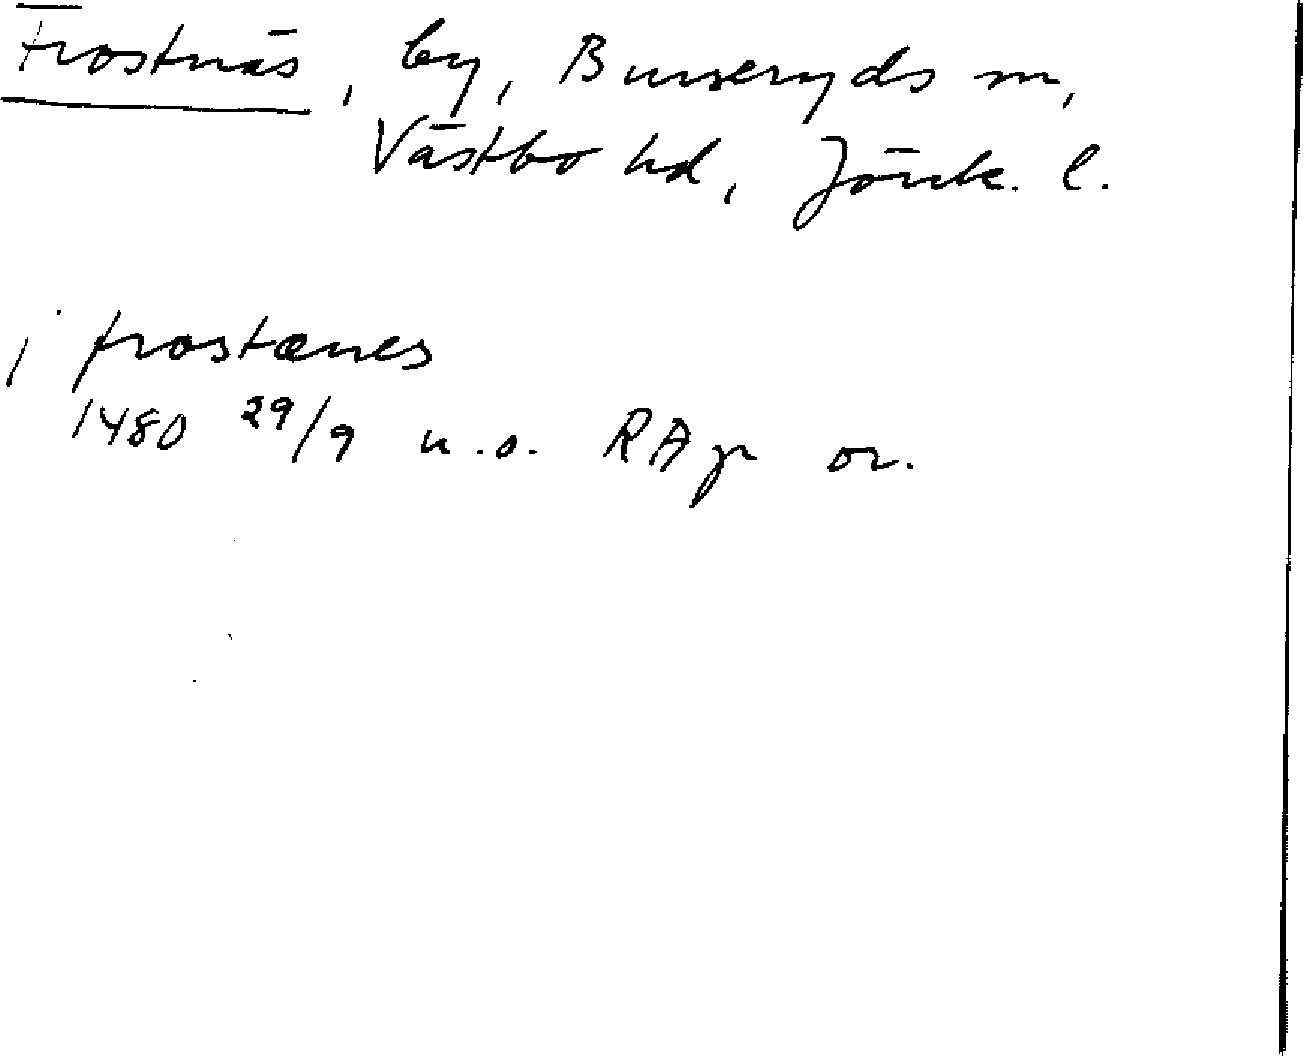 Frostnäs, by, Burseryds sn,
Västbo hd, Jönk. l.
j frostænes
1480 29/9 u.o. RAp or.